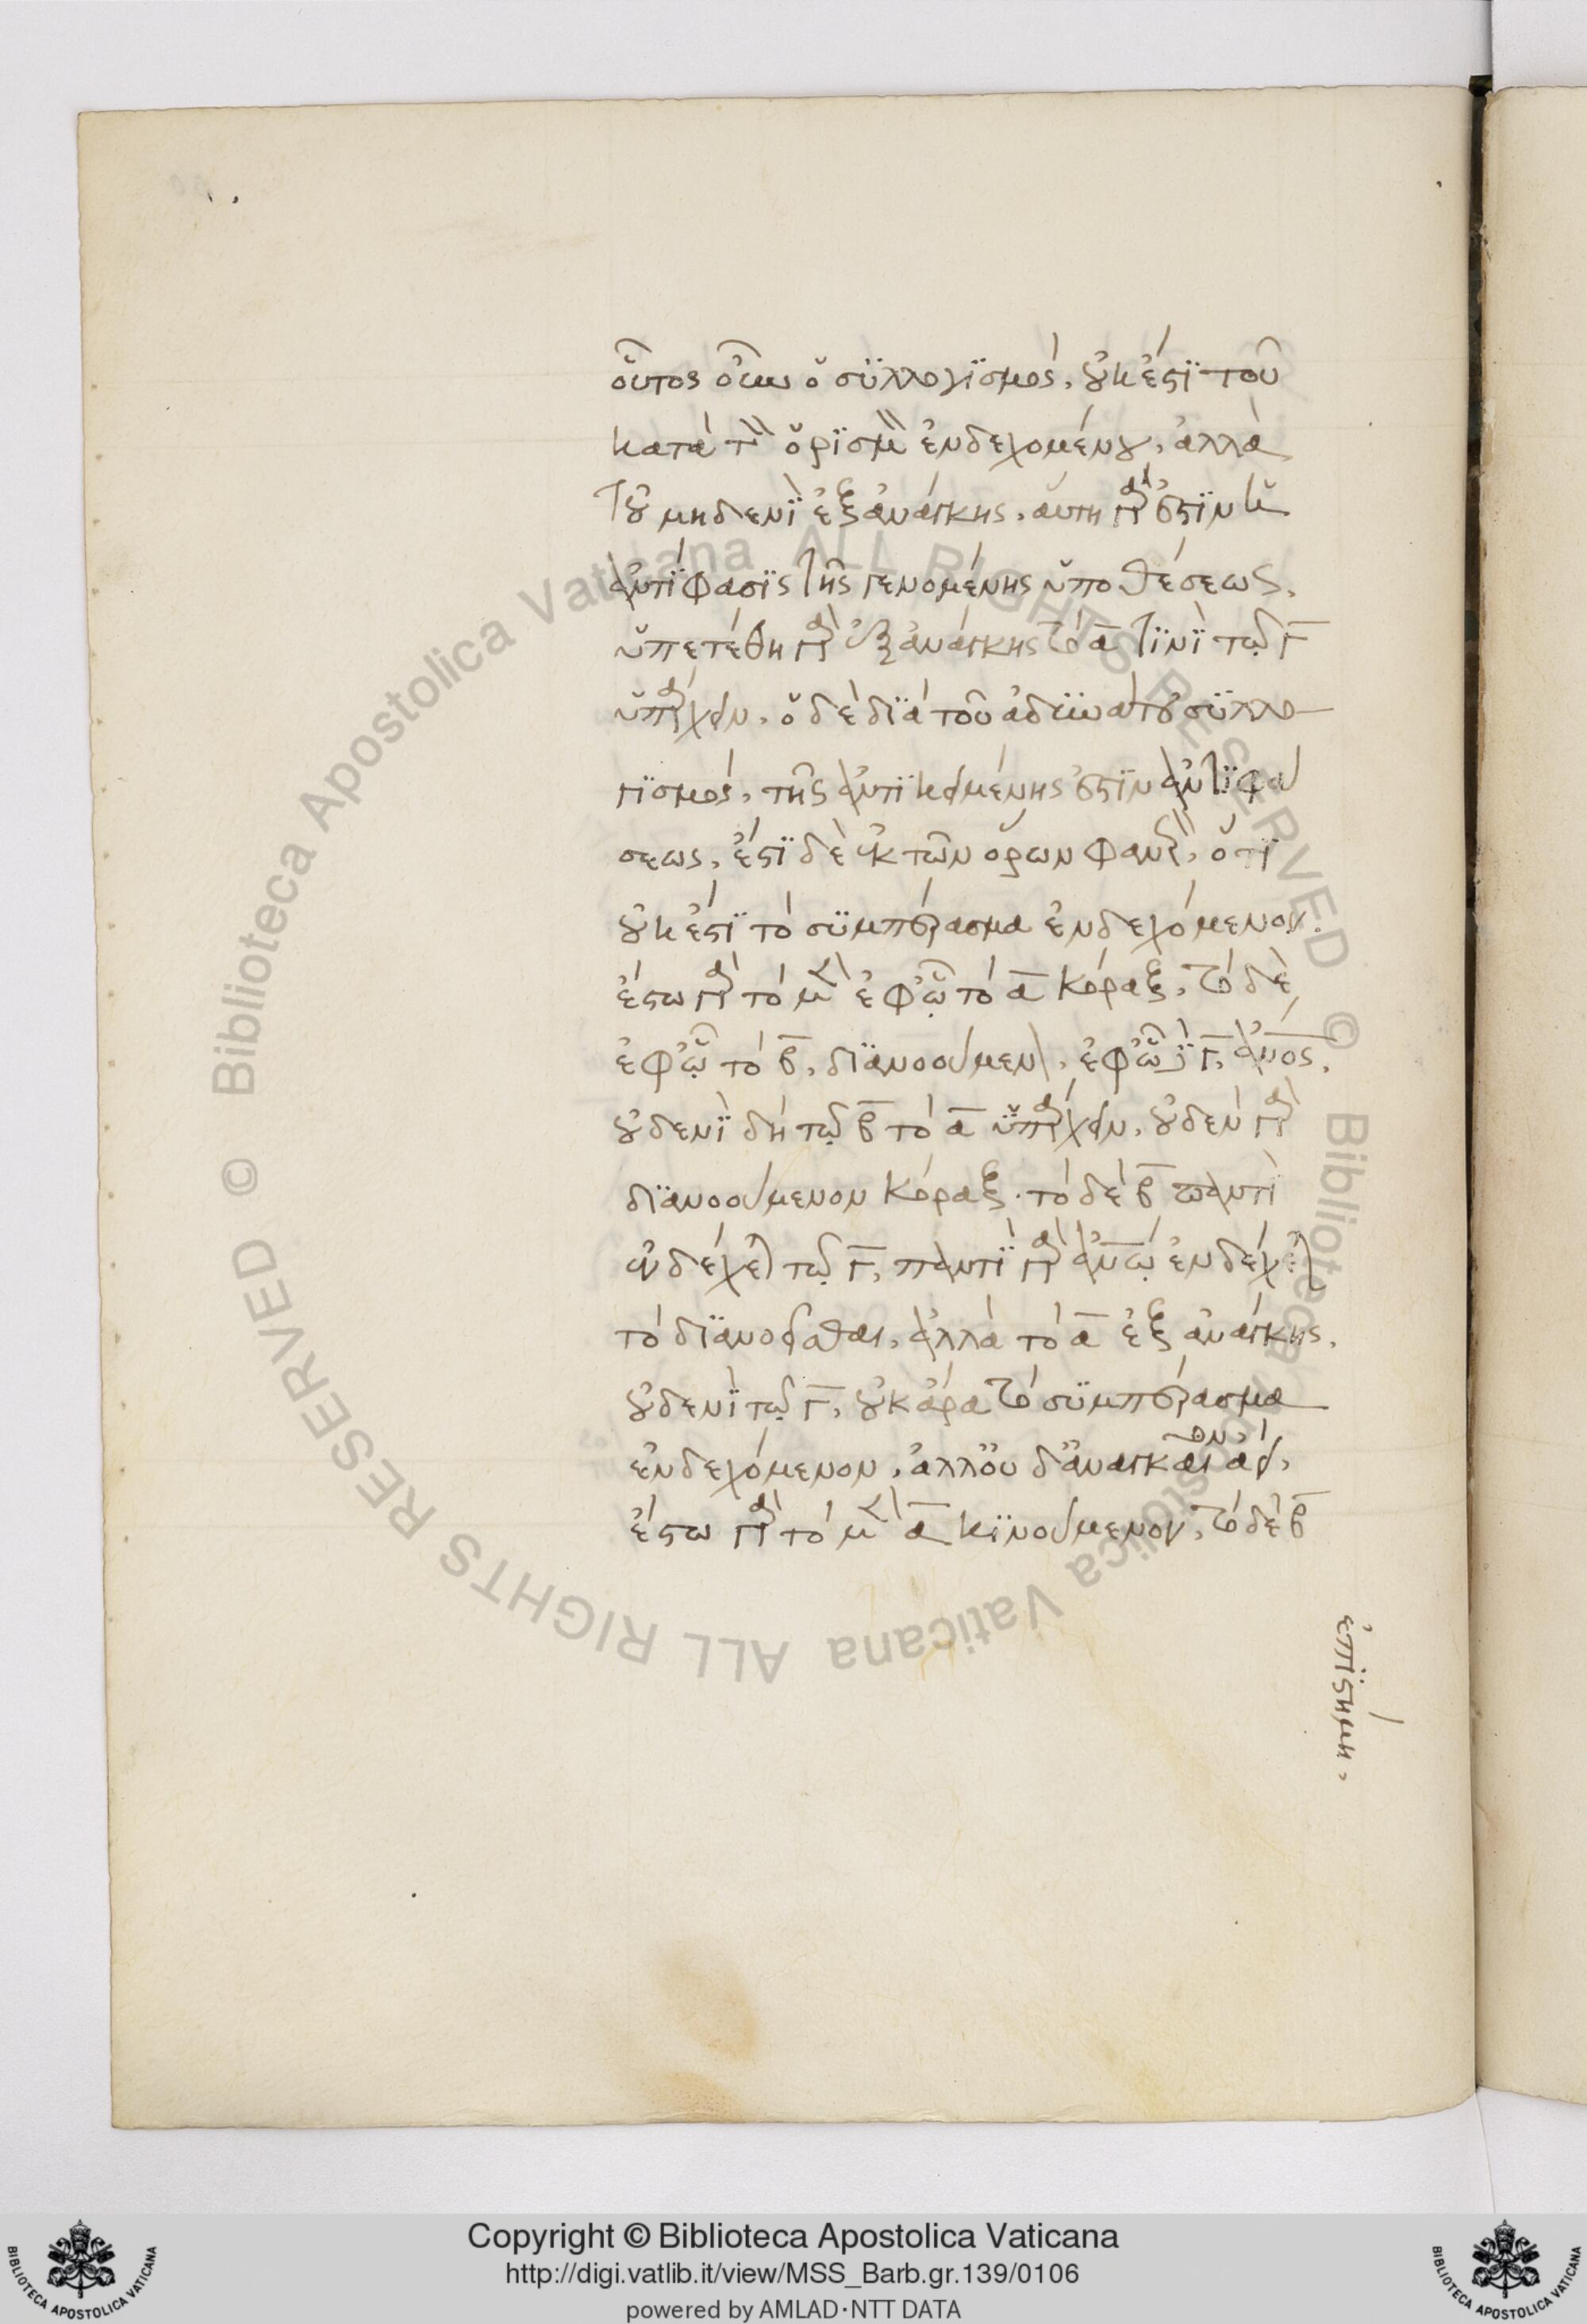 οὗτος οὖν ὁ συλλογισμός, οὐκ ἔστι τοῦ
κατὰ τὸν ὁρισμὸν ἐνδεχομένου, ἀλλὰ
τοῦ μηδενὶ ἐξ ἀνάγκης. αὕτη γάρ ἐστιν ἡ
ἀντίφασις τῆς γενομένης ὑποθέσεως.
ὑπετέθη γὰρ ἐξ ἀνάγκης τὸ α τινὶ τῷ γ
ὑπάρχειν. ὁ δὲ διὰ τοῦ ἀδυνάτου συλλο-
γισμός, τῆς ἀντικειμένης ἐστὶν ἀντιφά
σεως. ἔστι δὲ ἐκ τῶν ὅρων φανερὸν, ὅτι
οὐκ ἔστι τὸ συμπέρασμα ἐνδεχόμενον.
ἔστω γὰρ τὸ μὲν ἐφ' ᾧ τὸ α κόραξ, τὸ δὲ
ἐφ' ᾧ τὸ β, διανοούμενον, ἐφ' ᾧ δὲ γ, ἄνος.
οὐδενὶ δὴ τῷ β τὸ α ὑπάρχειν, οὐδὲν γὰρ
διανοούμενον κόραξ. τὸ δὲ β παντὶ
ἐνδέχεται τῷ γ, παντὶ γὰρ ἀνῳ ἐνδέχεται
τὸ διανοεῖσθαι, ἀλλὰ τὸ α ἐξ ἀνάγκης,
οὐδενὶ τῷ γ, οὐκ ἄρα τὸ συμπέρασμα
ἐνδεχόμενον. ἀλλ' οὐδ' ἀναγκαῖον ἀεί.
ἔστω γὰρ τὸ μὲν α κινούμενον, τὸ δὲ β
ἐπιστήμη.
Copyright © Biblioteca Apostolica Vaticana
http://digi.vatlib.it/view/MSS_Barb.gr.139/0106
powered by AMLAD·NTT DATA
© Biblioteca Apostolica Vaticana ALL RIGHTS RESERVED
© Biblioteca Apostolica Vaticana ALL RIGHTS RESERVED
BIBLIOTECA APOSTOLICA VATICANA
BIBLIOTECA APOSTOLICA VATICANA